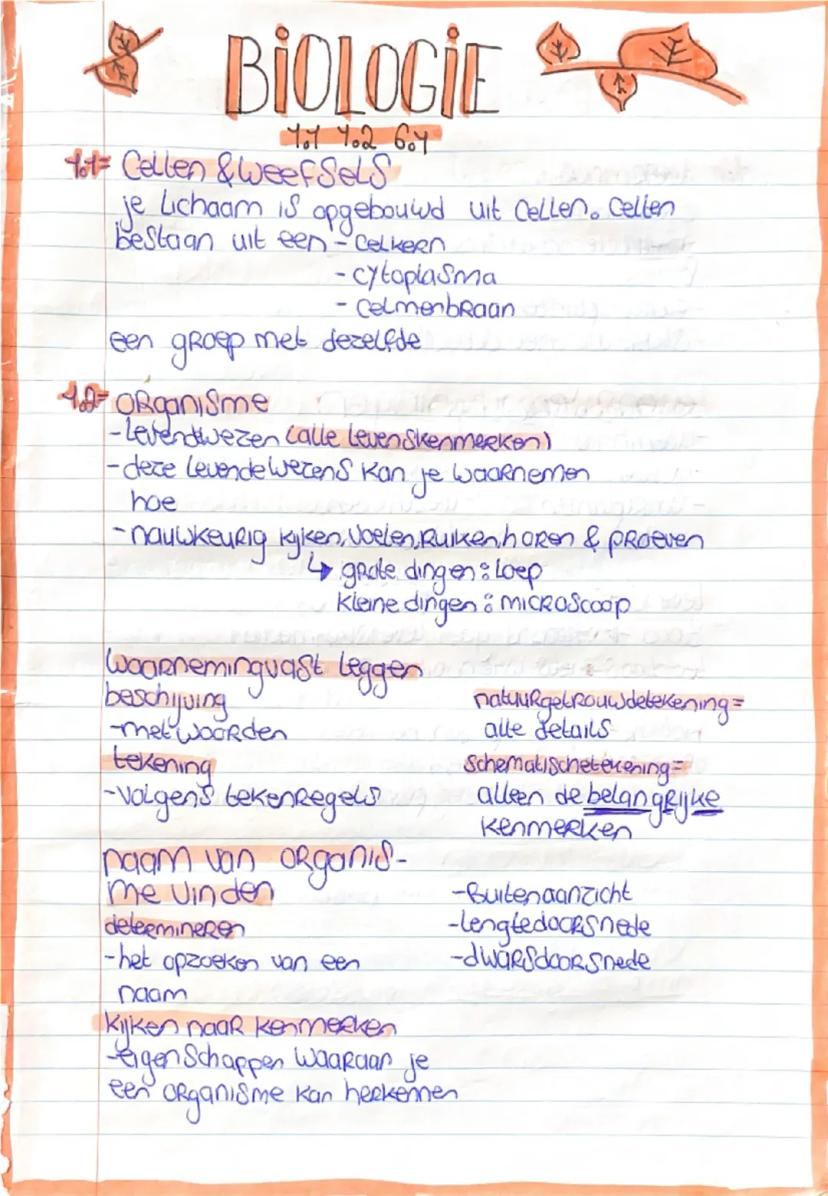 BiOLOGiE
1.1 1.2 6.4
1.1= Cellen & weefsels
je lichaam is opgebouwd uit cellen. cellen
bestaan uit een - celkern
- cytoplasma
- celmenbraan
een groep met dezelfde
1.2= organisme
- levendwezen (alle levenskenmerken)
- deze levende wezens kan je waarnemen
hoe
- nauwkeurig kijken, voelen, ruiken, horen & proeven
↳ grote dingen: loep
kleine dingen: microscoop
waarneming vast leggen
beschijving
- met woorden
tekening
- volgens tekenregels
natuurgetrouwdetekening =
alle details
schematischetekening =
alleen de belangrijke
kenmerken
naam van organis-
me vinden
determineren
- het opzoeken van een
naam
- Buitenaanzicht
- lengtedoorsnede
- dwarsdoorsnede
kijken naar kenmerken
- eigenschappen waaraan je
een organisme kan herkennen